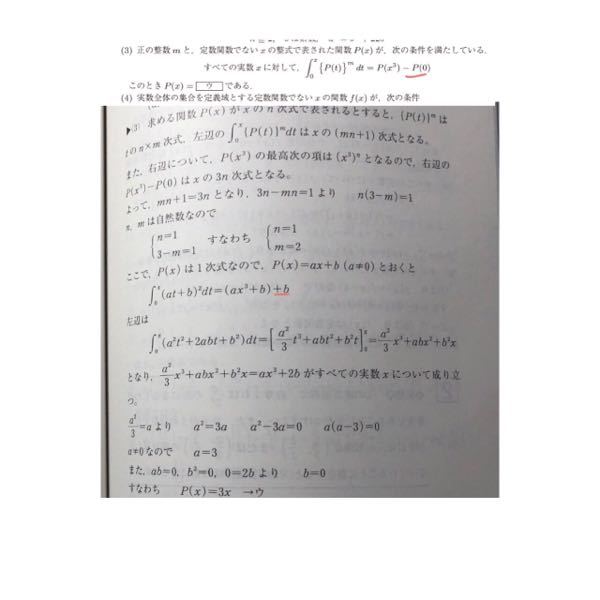 (3) 正の整数 m と，定数関数でない x の整式で表された関数 P(x) が，次の条件を満たしている．
すべての実数 x に対して，∫₀ˣ {P(t)}ᵐ dt = P(x³) − P(0)
このとき P(x)= ウ である．
(4) 実数全体の集合を定義域とする定数関数でない x の関数 f(x) が，次の条件
▶(3) 求める関数 P(x) が x の n 次式で表されるとすると，{P(t)}ᵐ は
t の n×m 次式，左辺の ∫₀ˣ {P(t)}ᵐdt は x の (mn+1) 次式となる。
また，右辺について，P(x³) の最高次の項は (x³)ⁿ となるので，右辺の
P(x³)−P(0) は x の 3n 次式となる。
よって，mn+1=3n となり，3n−mn=1 より n(3−m)=1
n, m は自然数なので
{n=1 3−m=1 すなわち {n=1 m=2
ここで，P(x) は1次式なので，P(x)=ax+b (a≠0) とおくと
∫₀ˣ(at+b)²dt=(ax³+b)+b
左辺は
∫₀ˣ(a²t²+2abt+b²)dt=[a²/3 t³+abt²+b²t]₀ˣ=a²/3 x³+abx²+b²x
となり，a²/3 x³+abx²+b²x=ax³+2b がすべての実数 x について成り立
つ。
a²/3=a より a²=3a a²−3a=0 a(a−3)=0
a≠0 なので a=3
また，ab=0，b²=0，0=2b より b=0
すなわち P(x)=3x →ウ